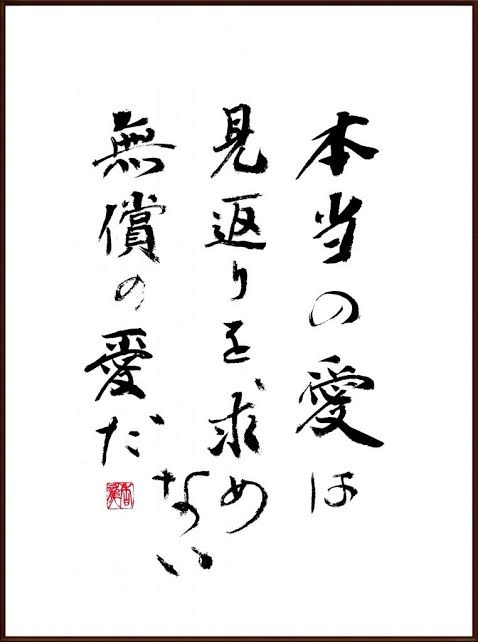 本当の愛は
見返りを求めない
無償の愛だ